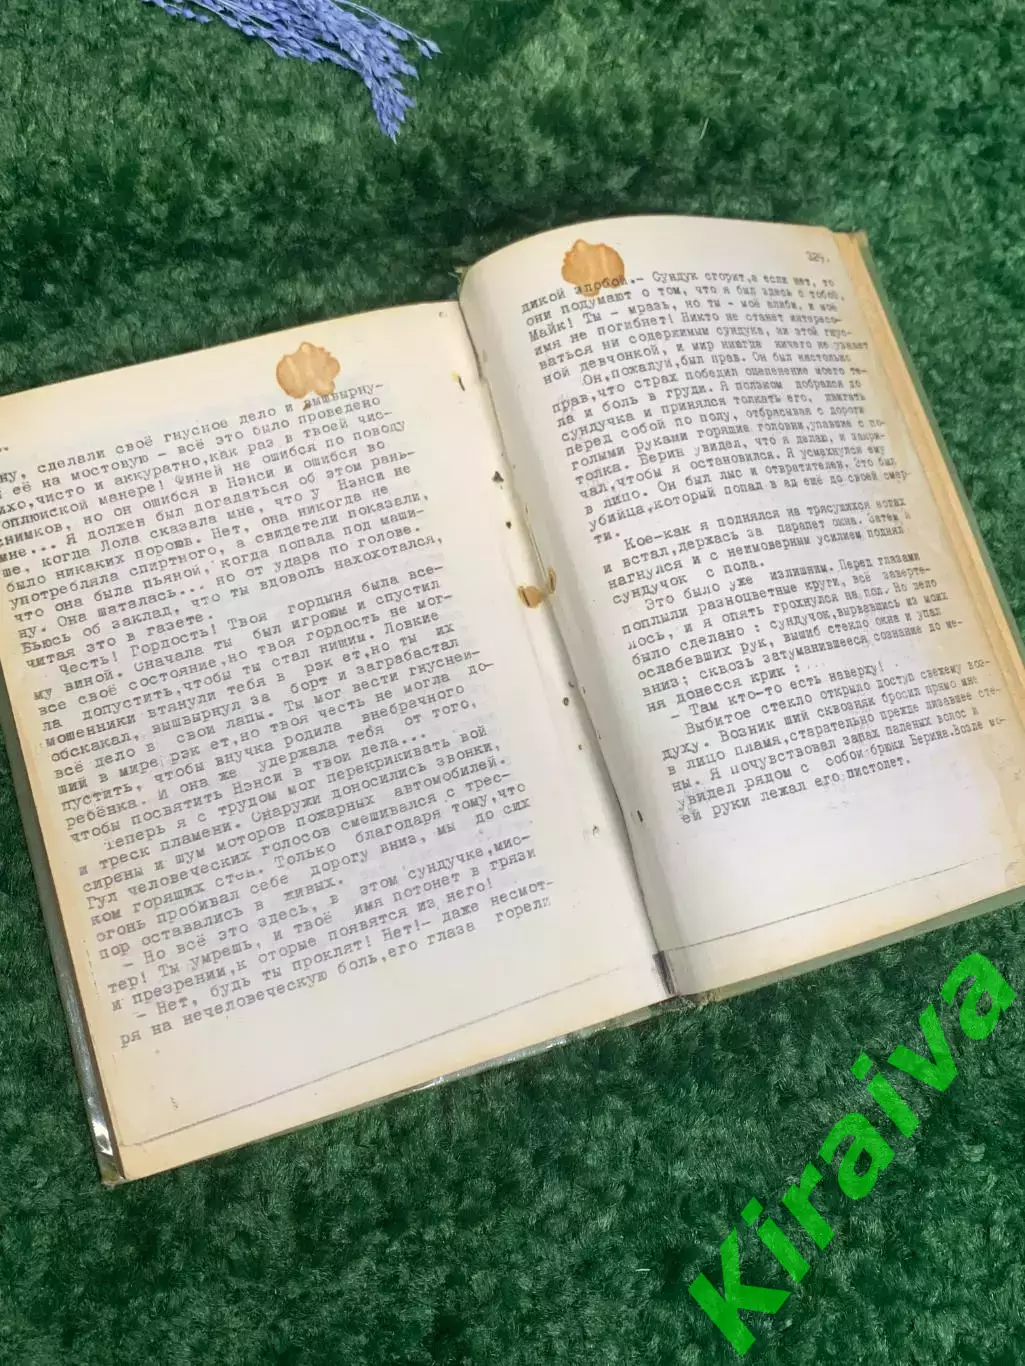 ну, сделали своё гнусное дело и вышвырну-
её на мостовую - всё это было проведено
ихо,чисто и аккуратно,как раз в твоей чис-
оплюйской манере! Финей не ошибся по поводу
снимков, но он ошибся в Нэнси и ошибся во
мне... Я должен был догадаться об этом рань-
ше, когда Лола сказала мне, что у Нэнси не
было никаких пороков. Нет, она никогда не
употребляла спиртного, а свидетели показали,
что она была пьяной, когда попала под маши-
ну. Она шаталась... но от удара по голове.
Бьюсь об заклад, что ты вдоволь нахохотался,
читая это в газете.
Честь! Гордость! Твоя гордыня была все-
му виной. Сначала ты был игроком и спустил
все своё состояние,но твоя гордость не мог-
ла допустить,чтобы ты стал нищим. Ловкие
мошенники втянули тебя в рэк ет,но ты их
обскакал, вышвырнул за борт и заграбастал
всё дело в свои лапы. Ты мог вести гнусней-
ший в мире рэк ет,но твоя честь не могла до-
пустить, чтобы внучка родила внебрачного
ребёнка. И она же удержала тебя от того,
чтобы посвятить Нэнси в твои дела...
Теперь я с трудом мог перекрикивать вой
и треск пламени. Снаружи доносились звонки,
сирены и шум моторов пожарных автомобилей.
Гул человеческих голосов смешивался с трес-
ком горящих стен. Только благодаря тому,что
огонь пробивал себе дорогу вниз, мы до сих
пор оставались в живых.
- Но всё это здесь, в этом сундучке,мис-
тер! Ты умрешь, и твоё имя потонет в грязи
и презрении,к оторые появятся из него!
- Нет, будь ты проклят! Нет!- даже несмот-
ря на нечеловеческую боль,его глаза горели
324.
дикой злобой.- Сундук сгорит,а если нет, то
они подумают о том, что я был здесь с тобой,
Майк! Ты - мразь, но ты - моё алиби, и моё
имя не погибнет! Никто не станет интересо-
ваться ни содержимым сундука, ни этой гнус-
ной девчонкой, и мир никогда ничего не узнает
Он,пожалуй,был прав. Он был настолько
прав,что страх победил оцепенение моего те-
ла и боль в груди. Я ползком добрался до
сундучка и принялся толкать его, двигать
перед собой по полу, отбрасывая с дороги
голыми руками горящие головни,упавшие с по-
толка. Берин увидел, что я делаю, и закри-
чал,чтобы я остановился. Я усмехнулся ему
в лицо. Он был лыс и отвратителен. Это был
убийца,который попал в ад ещё до своей смер-
ти.
Кое-как я поднялся на трясущихся ногах
и встал,держась за парапет окна. Затем я
нагнулся и с неимоверным усилием поднял
сундучок с пола.
Это было уже излишним. Перед глазами
поплыли разноцветные круги, всё заверте-
лось, и я опять грохнулся на пол. Но дело
было сделано : сундучок,вырвавшись из моих
ослабевших рук, вышиб стекло окна и упал
вниз; сквозь затуманившееся сознание до ме-
ня донесся крик :
- Там кто-то есть наверху!
Выбитое стекло открыло доступ свежему воз-
духу. Возник ший сквозняк бросил прямо мне
в лицо пламя,старательно прежде лизавшее сте-
ны. Я почувствовал запах паленых волос и
увидел рядом с собой брюки Берина.Возле мо-
ей руки лежал его пистолет.
Kiraiva